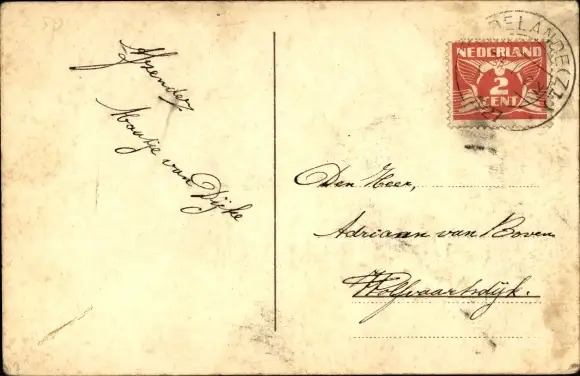 Afzender
Maatje van Dijke
NEDERLAND
2
CENT
DELANDE(ZL)
Den Heer,
Adriaan van Boven
Wolfvaartsdijk.